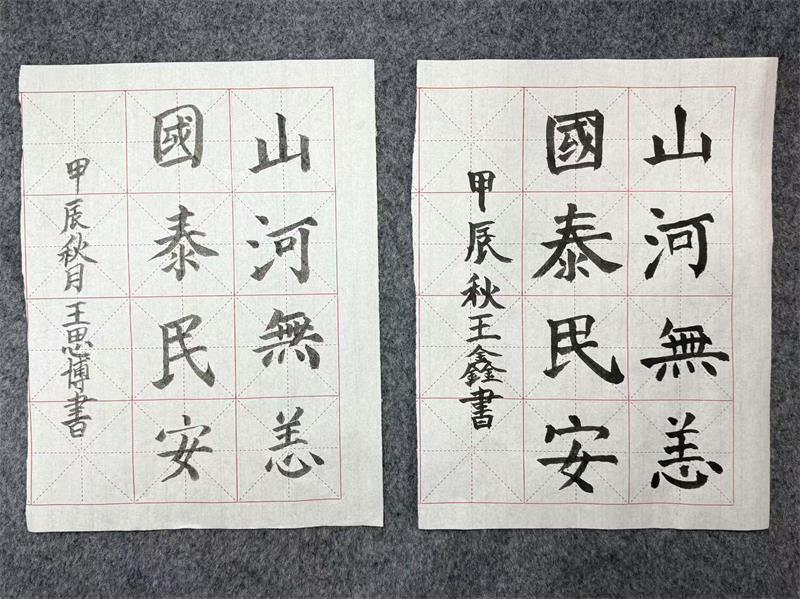 山河無恙
國泰民安
甲辰秋月王思博書
山河無恙
國泰民安
甲辰秋王鑫書